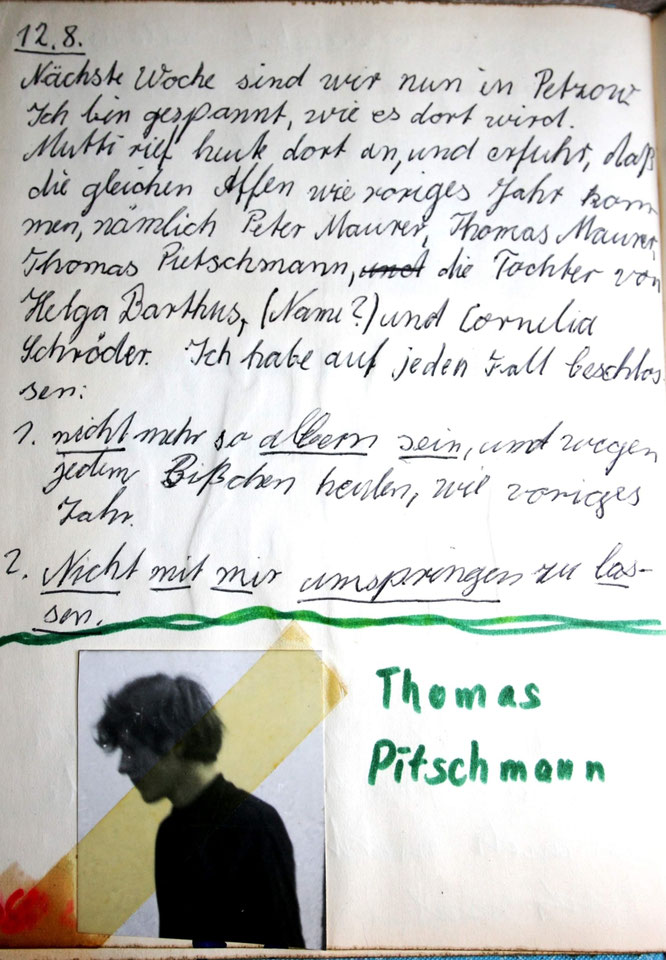 12.8.
Nächste Woche sind wir nun in Petzow
Ich bin gespannt, wie es dort wird.
Mutti rief heute dort an, und erfuhr, daß
die gleichen Affen wie voriges Jahr kom
men, nämlich Peter Maurer, Thomas Maurer,
Thomas Pietschmann, und die Tochter von
Helga Barthus, (Name?) und Cornelia
Schröder. Ich habe auf jeden Fall beschlos-
sen:
1. nicht mehr so albern sein, und wegen
jedem Bißchen heulen, wie voriges
Jahr.
2. Nicht mit mir umspringen zu las-
sen.
Thomas
Pitschmann